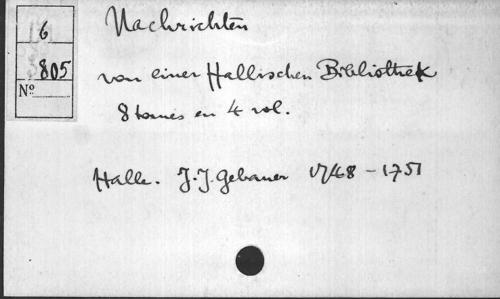 6
805
Nº
Nachrichten
von einer Hallischen Bibliothek
8 tomes en 4 vol.
Halle. J. J. Gebauer 1748 - 1751